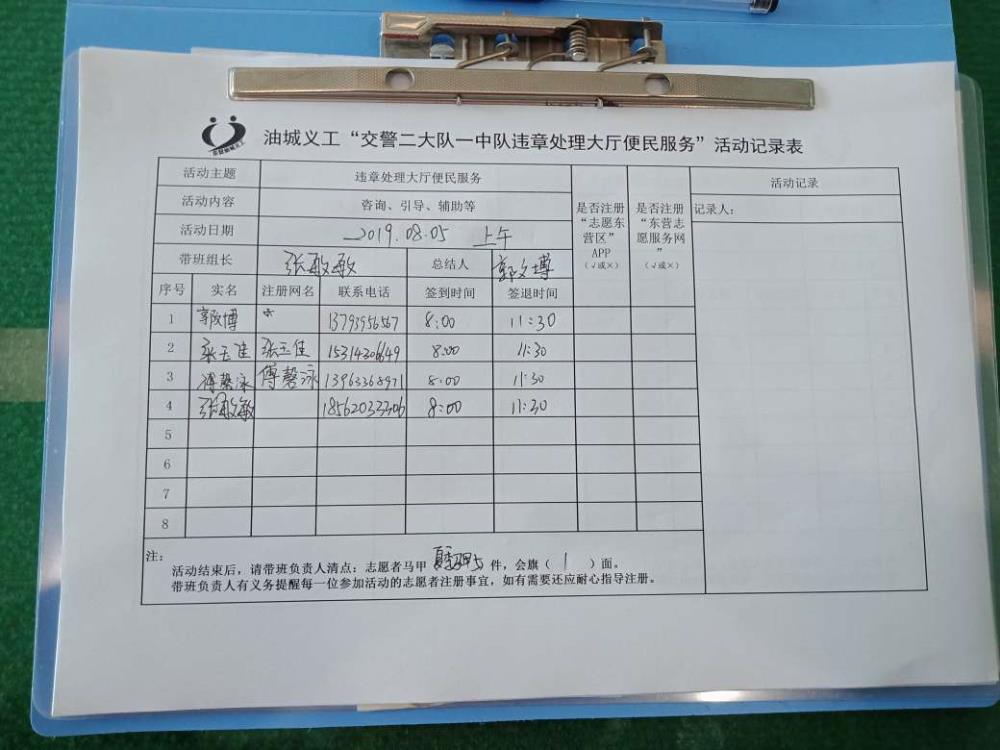 油城义工“交警二大队一中队违章处理大厅便民服务”活动记录表
活动主题 违章处理大厅便民服务
活动内容 咨询、引导、辅助等
活动日期 2019.08.05 上午
带班组长 张敏敏 总结人 郭文博
是否注册“志愿东营区”APP（√或×）
是否注册“东营志愿服务网”（√或×）
活动记录
记录人：
序号 实名 注册网名 联系电话 签到时间 签退时间
1 郭文博 13793956567 8:00 11:30
2 张玉佳 张玉佳 15314306649 8:00 11:30
3 傅馨泳 傅馨泳 13963368971 8:00 11:30
4 张敏敏 18562033306 8:00 11:30
5
6
7
8
注：
活动结束后，请带班负责人清点：志愿者马甲 5 件，会旗（ 1 ）面。
带班负责人有义务提醒每一位参加活动的志愿者注册事宜，如有需要还应耐心指导注册。